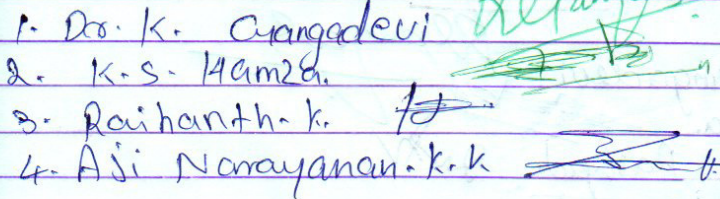 1. Dr. K. Gangadevi
2. K.S. Hamza.
3. Raihanth. K.
4. Aji Narayanan. K. K